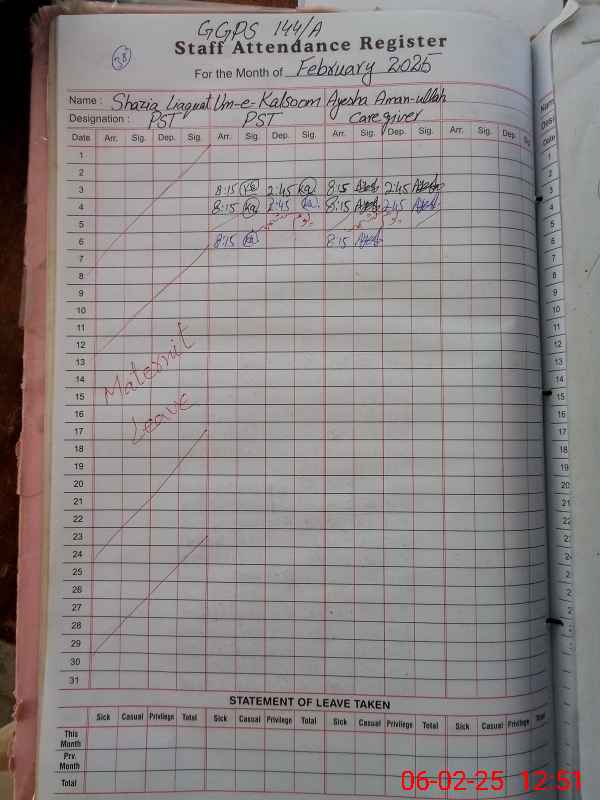 38
GGPS 144/A
Staff Attendance Register
For the Month of February 2025
Name : Shazia Liaquat Um-e-Kalsoom Ayesha Aman-ullah
Designation : PST PST Caregiver
Date Arr. Sig. Dep. Sig. Arr. Sig. Dep. Sig. Arr. Sig. Dep. Sig. Arr. Sig. Dep. Sig.
1
2
3 8:15 2:45 8:15 2:45
4 8:15 2:45 8:15 2:45
5
6 8:15 8:15
7
8
9
10
11
12
13
14
15
16
17
18
19
20
21
22
23
24
25
26
27
28
29
30
31
Maternit
Leave
STATEMENT OF LEAVE TAKEN
Sick Casual Privilege Total Sick Casual Privilege Total Sick Casual Privilege Total Sick Casual Privilege Total
This Month
Prv. Month
Total
06-02-25 12:51